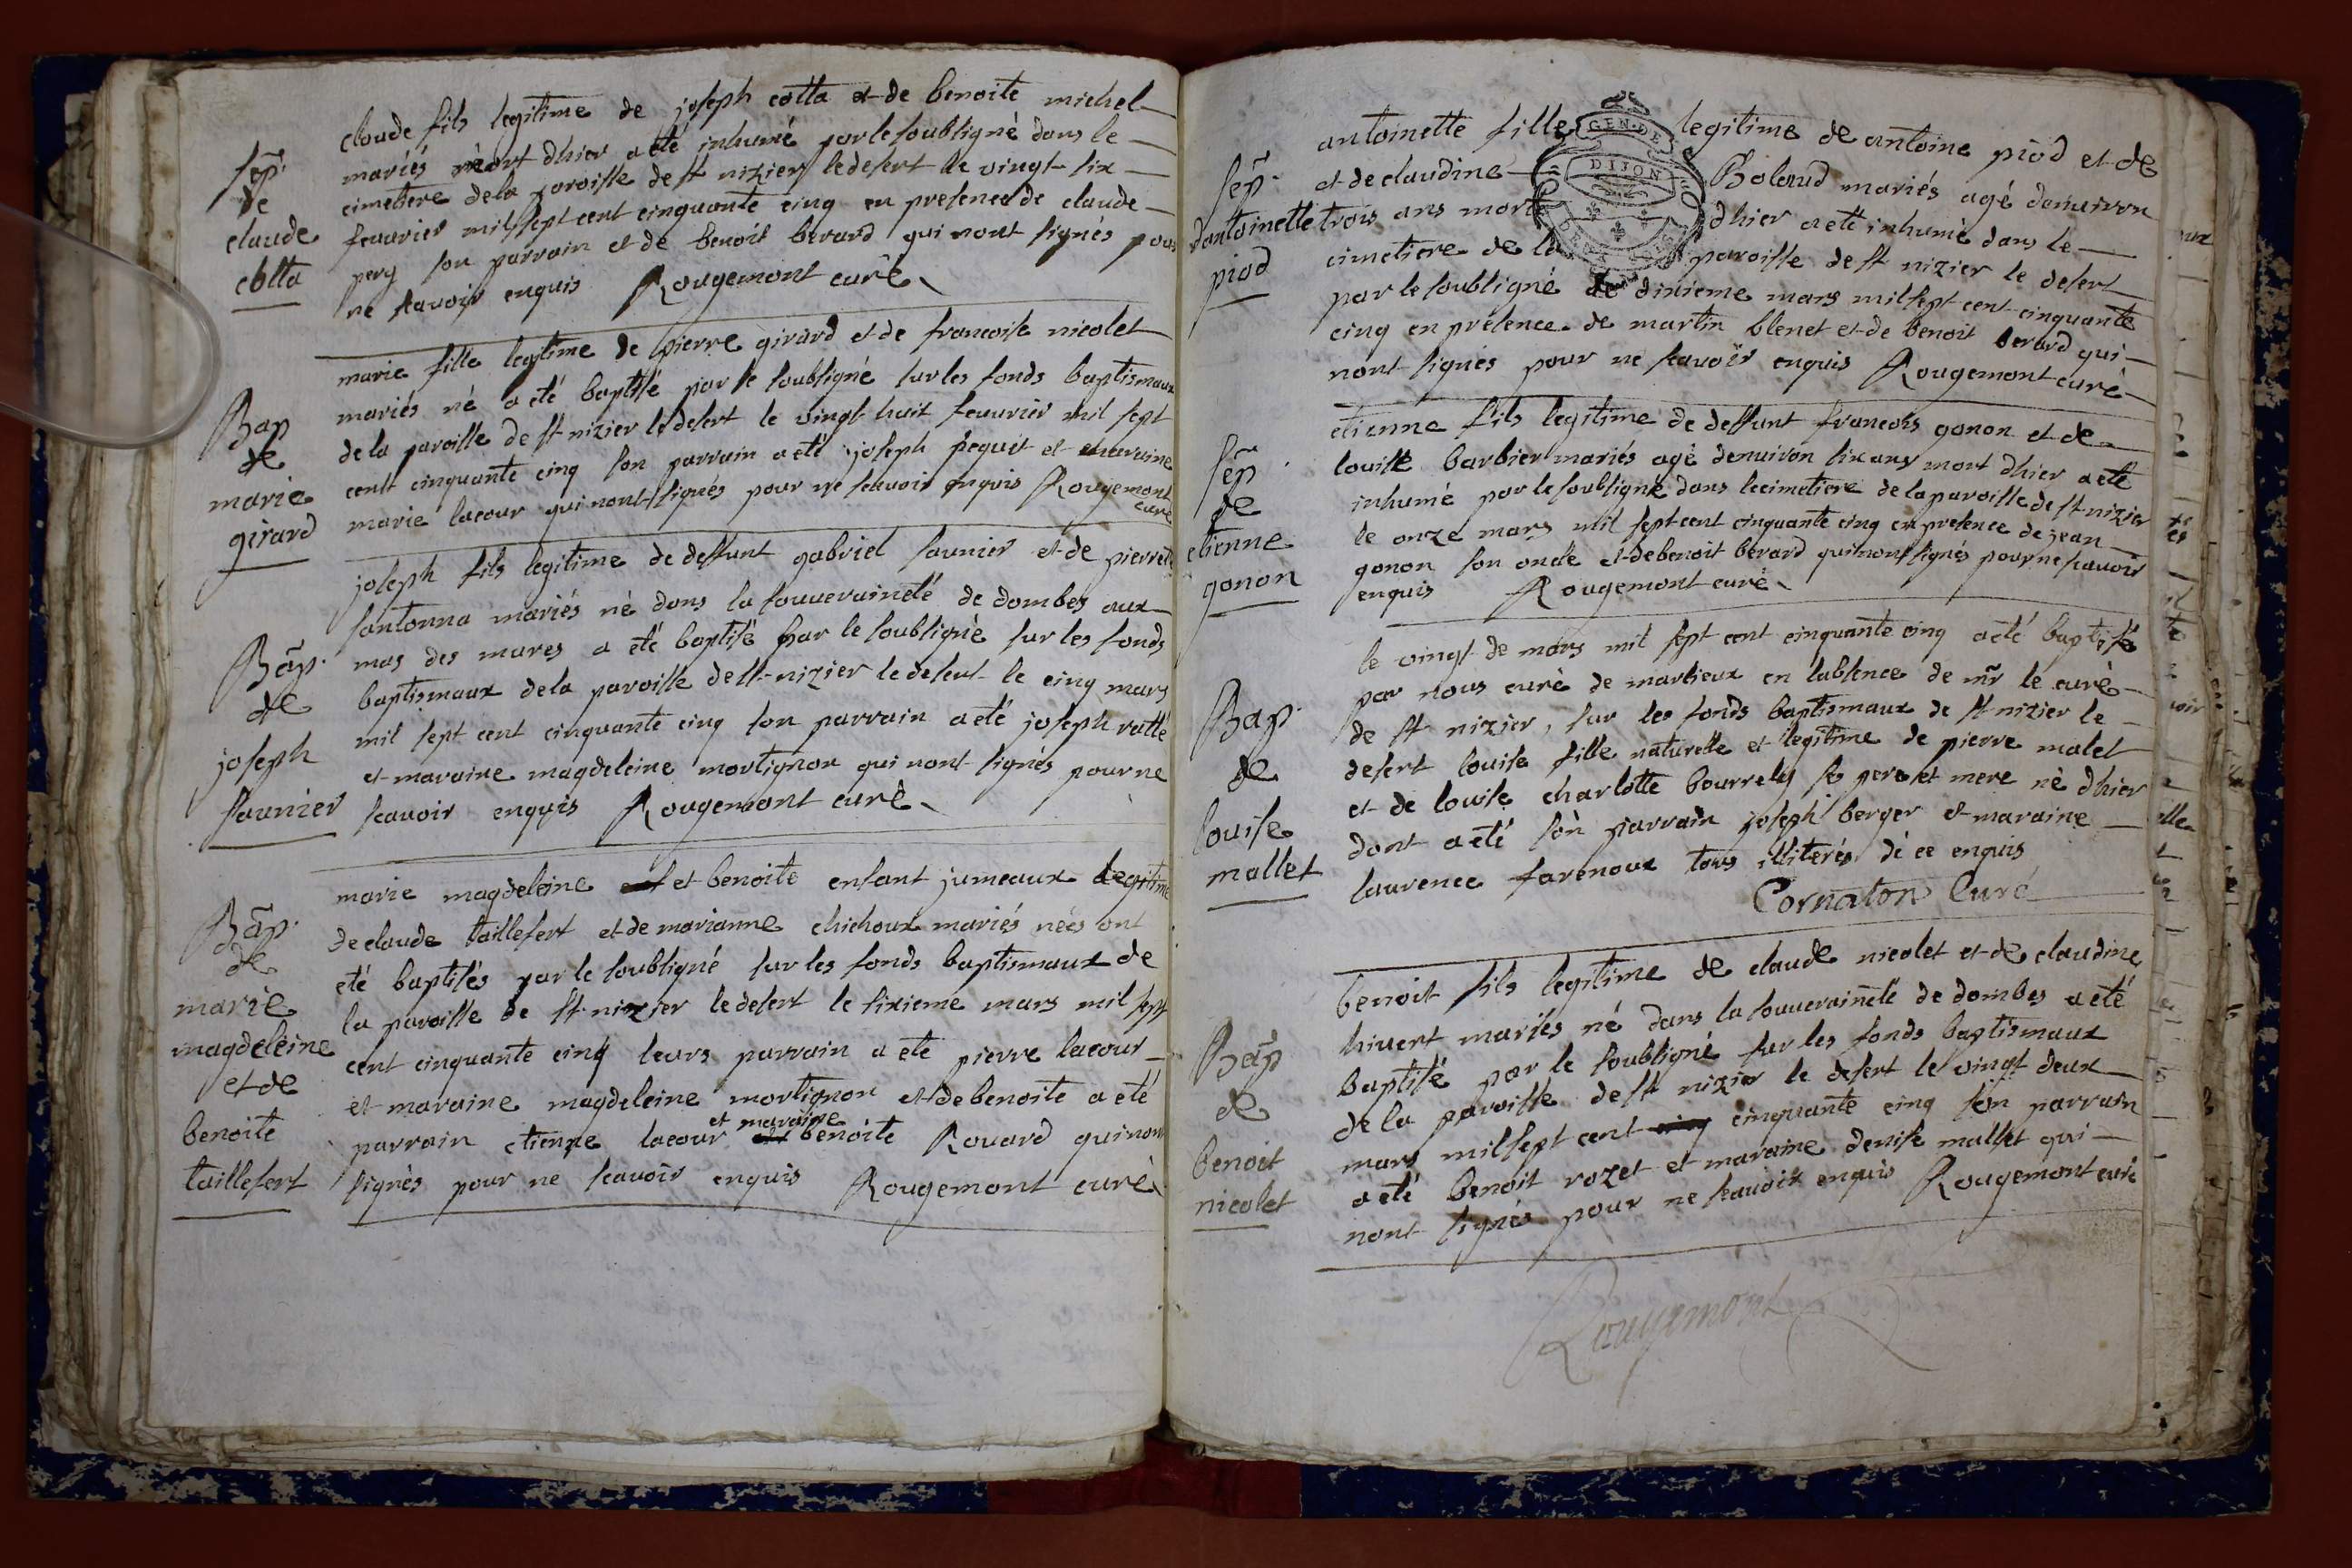 claude fils legitime de joseph cotta et de benoite michel
mariés mort dhier a été inhumé par le soubsigné dans le
cimetiere de la paroisse de st nizier le desert le vingt six
feuvrier mil sept cent cinquante cinq en presence de claude
pery son parrain et de benoit berard qui nont signés pour
ne scavoir enquis Rougemont curé
sep.
de
claude
cotta
marie fille legitime de pierre girard et de francoise nicolet
mariés né a été baptisé par le soubsigné sur les fonds baptismaux
de la paroisse de st nizier le desert le vingt huit feuvrier mil sept
cent cinquante cinq son parrain a eté joseph pequet et maraine
marie lacour qui nont signés pour ne scavoir enquis Rougemont
curé
Bap
de
marie
girard
joseph fils legitime de deffunt gabriel saunier et de pierrete
santonna mariés né dans la souveraineté de dombes aux
mas des mares a eté baptisé par le soubsigné sur les fonds
baptismaux de la paroisse de st nizier le desert le cinq mars
mil sept cent cinquante cinq son parrain a eté joseph ratté
et maraine magdeleine mortignon qui nont signés pour ne
scavoir enquis Rougemont curé
Bap.
de
joseph
saunier
marie magdeleine et benoite enfant jumeaux legitime
de claude taillefert et de marianne chichoux mariés nées ont
eté baptisés par le soubsigné sur les fonds baptismaux de
la paroisse de st nizier le desert le sixieme mars mil sept
cent cinquante cinq leurs parrain a eté pierre lacour
et maraine magdeleine mortignon et de benoite a eté
parrain etienne lacour et maraine benoite Rouard qui nont
signés pour ne scavoir enquis Rougemont curé
Bap.
de
marie
magdeleine
et de
benoite
taillefert
GEN. DE
DIJON
antoinette fille legitime de antoine piod et de
et de claudine Boland mariés agé denuiron
trois ans mort dhier a eté inhumé dans le
cimetiere de la paroisse de st nizier le desert
par le soubsigné le dixieme mars mil sept cent cinquante
cinq en presence de martin blenet et de benoit berard qui
nont signés pour ne scavoir enquis Rougemont curé
sep.
dantoinette
piod
etienne fils legitime de deffunt francois gonon et de
louise barbier mariés agé denuiron six ans mort dhier a eté
inhumé par le soubsigné dans le cimetiere de la paroisse de st nizier
le onze mars mil sept cent cinquante cinq en presence de jean
gonon son oncle et de benoit berard qui nont signés pour ne scavoir
enquis Rougemont curé
sep.
de
etienne
gonon
le vingt de mars mil sept cent cinquante cinq a eté baptisé
par nous curé de marlieux en labsence de mr le curé
de st nizier, sur les fonds baptismaux de st nizier le
desert louise fille naturelle et legitime de pierre malet
et de louise charlotte bourrely ses pere et mere né dhier
dont a eté son parrain joseph berger et maraine
laurence farenoux tous illiterés de ce enquis
Cornaton Curé
Bap.
de
louise
mallet
benoit fils legitime de claude nicolet et de claudine
hiuert mariés né dans la souveraineté de dombes a eté
baptisé par le soubsigné sur les fonds baptismaux
de la paroisse de st nizier le desert le vingt deux
mars mil sept cent cinq cinquante cinq son parrain
a eté benoit rozet et maraine denise mallet qui
nont signés pour ne scavoir enquis Rougemont curé
Bap
de
benoit
nicolet
Rougemont